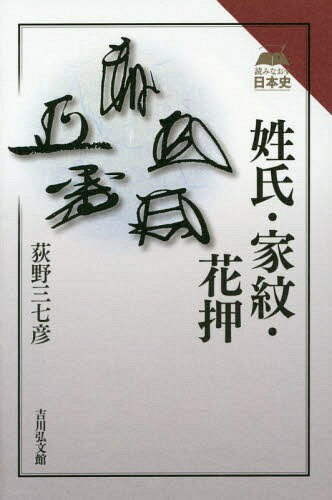 読みなおす
日本史
姓氏・家紋・
花押
荻野三七彦
吉川弘文館